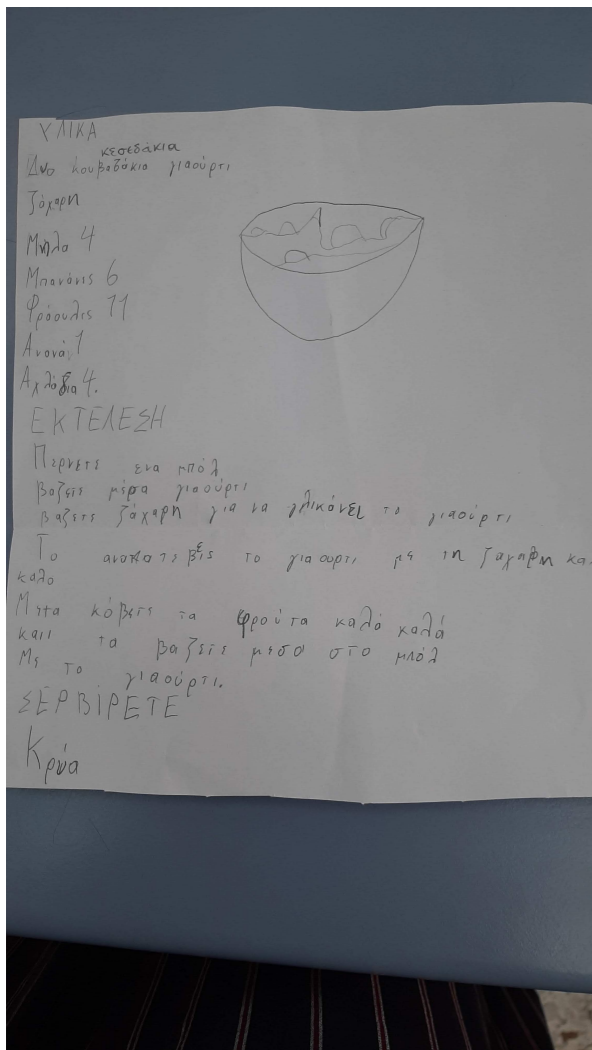 ΥΛΙΚΑ
κεσεδάκια
Δυο κουβαδάκια γιαούρτι
Ζάχαρη
Μηλα 4
Μπανάνις 6
Φράουλες 11
Ανανά 1
Αχλάδια 4.
ΕΚΤΕΛΕΣΗ
Περνετε ενα μπόλ
βαζετε μέσα γιαούρτι
βαζετε ζάχαρη για να γλικάνει το γιαούρτι
Το ανακατεβεις το γιαουρτι με τη ζαχαρη κα
καλο
Μετα κόβετε τα φρούτα καλά καλά
και τα βαζετε μεσα στο μπόλ
Με το γιαούρτι.
ΣΕΡΒΙΡΕΤΕ
Κρύα